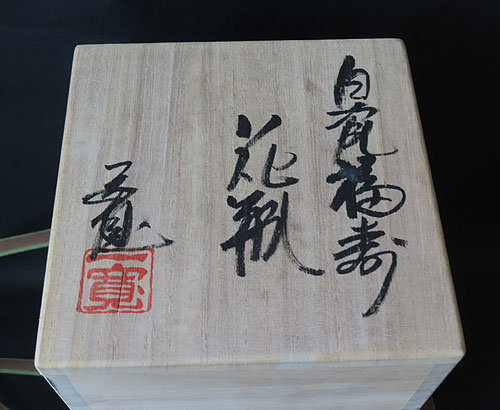 白窯福寿
花瓶
一寛